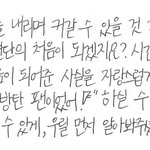 내리며 커갈 수 있을 것
단의 처음이 되겠지요? 시간
이 되어준 사실을 자랑스럽게
방탄 팬이었어!" 하실 수
수 있게, 우릴 먼저 알아봐주